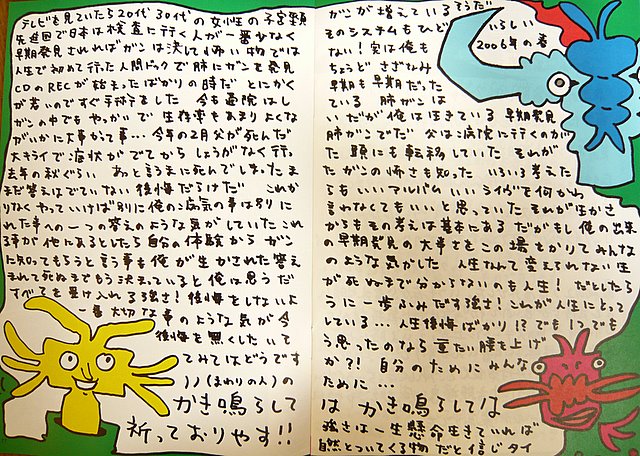 テレビを見ていたら20代30代の女性の子宮頸 ガンが増えているそうだ
先進国で日本は検査に行く人が一番少なく そのシステムもひど いらしい
早期発見されればガンは決して怖い物では ない!実は俺も 2006年の春
人生で初めて行った人間ドックで肺にガンを発見 ちょうど さざなみ
CDのRECが始まったばかりの時だ とにかく 早期も早期だった
が若いのですぐ手術しました 今も通院はし ている 肺ガンは
ガンの中でもやっかいで生存率もあまりよくな いだが俺は生きている 早期発見
がいかに大事かって事…今年の2月父が死んだ 肺ガンでだ 父は病院に行くのが
大キライで症状がでてからしょうがなく行っ た 頭にも転移していた それが
去年の秋ぐらい あっと言うまに死んでしまった ま たガンの怖さも知った いろいろ考えた
まだ答えはでていない 後悔だらけだ これか らもいいアルバム いいライヴを何かわ
りなくやっていけば別に俺の病気の事は別に 言わなくてもいいと思っていた それが生かさ
れた事への一つの答えのような気がしていた これ からもその考えは基本にある だがもし俺の出来
る事が他にあるとしたら自分の体験からガン の早期発見の大事さをこの場をかりてみんな
に知ってもらうと言う事も俺が生かされた答え のような気がした 人生なんて変えられない 生
まれて死ぬまでもう決まっていると俺は思う だ が死ぬまで分からないのも人生! だとしたら
すべてを受け入れる強さ! 後悔をしないよ うに一歩ふみだす強さ!これが人生にとって
一番大切な事のような気が今 している…人生後悔ばかり!?でも1つでも
後悔を無くしたいて う思ったのなら重たい腰を上げ
てみてはどうです か?! 自分のためにみんな
(まわりの人)の ために…
かき鳴らして は かき鳴らしては
祈っておりやす!! 強さは一生懸命生きていれば
自然とついてくる物だと信じタイ